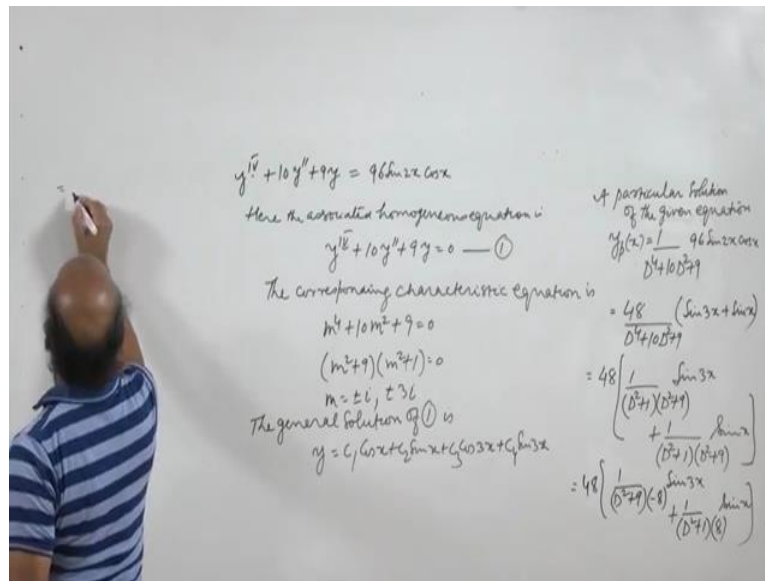 y^IV + 10y'' + 9y = 96 Sin 2x Cos x
Here the associated homogeneous equation is
y^IV + 10y'' + 9y = 0 — ①
The corresponding characteristic equation is
m⁴ + 10m² + 9 = 0
(m²+9)(m²+1) = 0
m = ±i, ±3i
The general solution of ① is
y = C₁Cosx + C₂Sinx + C₃Cos3x + C₄Sin3x
A particular solution
of the given equation
y_p(x) = 1/(D⁴+10D²+9) 96 Sin2x cosx
= 48/(D⁴+10D²+9) (Sin3x + Sinx)
= 48[1/((D²+1)(D²+9)) Sin3x
+ 1/((D²+1)(D²+9)) Sinx]
= 48[1/((D²+9)(-8)) Sin3x
+ 1/((D²+1)(8)) Sinx]
=